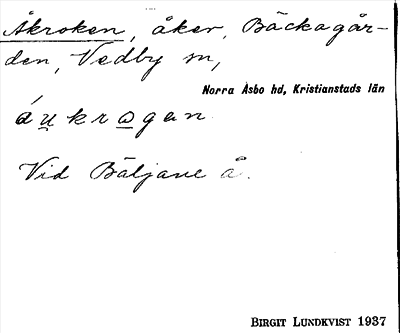 Åkroken, åker, Bäckagår-
den, Vedby sn,
Norra Åsbo hd, Kristianstads län
áu̲kro̲gen.
Vid Bäljane å.
BIRGIT LUNDKVIST 1937